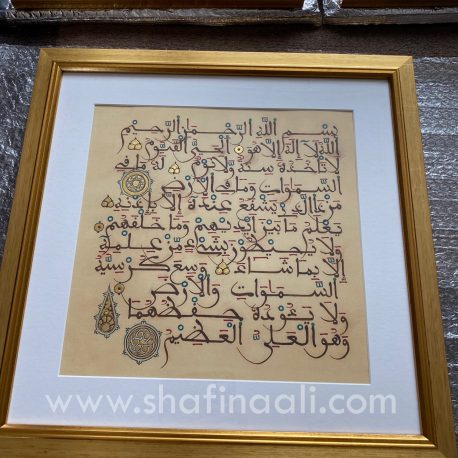 بِسْمِ اللَّهِ الرَّحْمَٰنِ الرَّحِيمِ
اللَّهُ لَا إِلَٰهَ إِلَّا هُوَ الْحَيُّ الْقَيُّومُ
لَا تَأْخُذُهُ سِنَةٌ وَلَا نَوْمٌ لَهُ مَا فِي
السَّمَاوَاتِ وَمَا فِي الْأَرْضِ
مَنْ ذَا الَّذِي يَشْفَعُ عِنْدَهُ إِلَّا بِإِذْنِهِ
يَعْلَمُ مَا بَيْنَ أَيْدِيهِمْ وَمَا خَلْفَهُمْ
وَلَا يُحِيطُونَ بِشَيْءٍ مِنْ عِلْمِهِ
إِلَّا بِمَا شَاءَ وَسِعَ كُرْسِيُّهُ
السَّمَاوَاتِ وَالْأَرْضَ
وَلَا يَئُودُهُ حِفْظُهُمَا
وَهُوَ الْعَلِيُّ الْعَظِيمُ
www.shafinaali.com